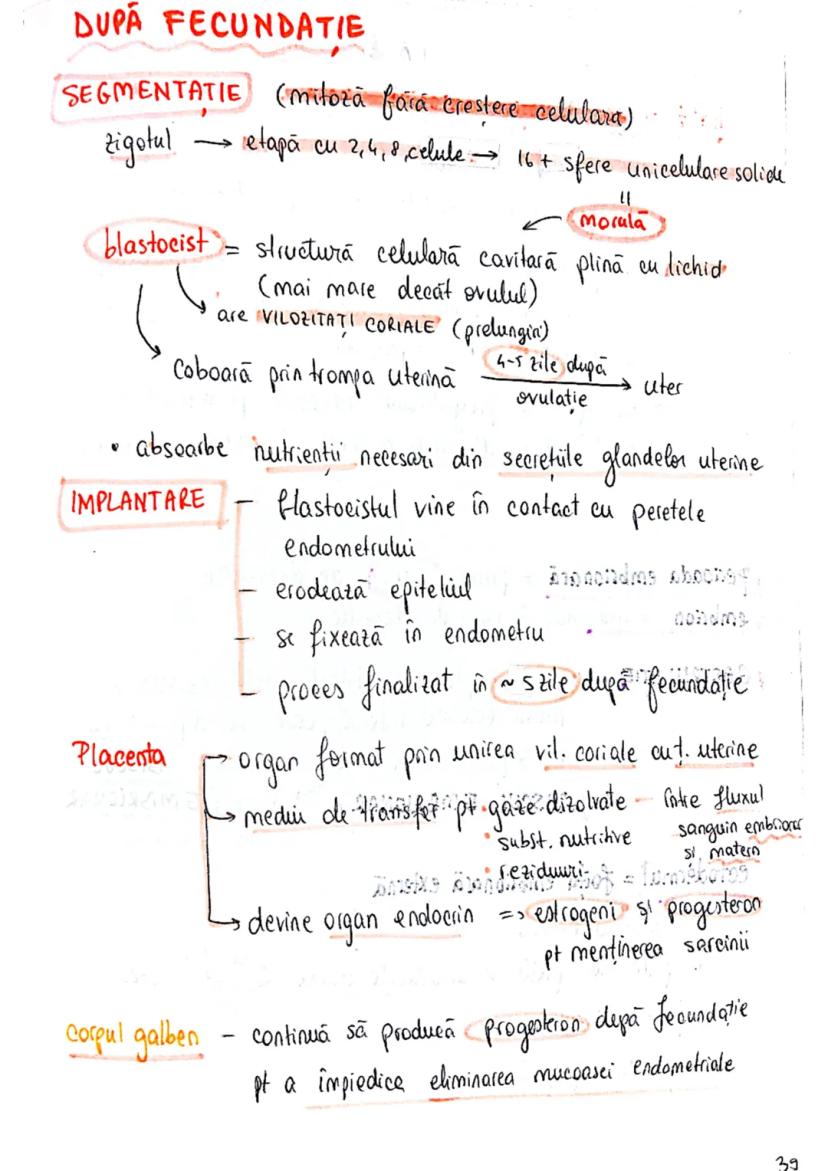 DUPĂ FECUNDAȚIE
SEGMENTAȚIE (mitoză fără creștere celulară)
zigotul → etapă cu 2, 4, 8 celule → 16+ sfere unicelulare solide
=
morulă
blastocist = structură celulară cavitară plină cu lichid
(mai mare decât ovulul)
are VILOZITAȚI CORIALE (prelungiri)
Coboară prin trompa uterină 4-5 zile după ovulație → uter
• absoarbe nutrienții necesari din secrețiile glandelor uterine
IMPLANTARE – Blastocistul vine în contact cu peretele
endometrului
– erodează epiteliul
– se fixează în endometru
– proces finalizat în ~ 5 zile după fecundație
Placenta → organ format prin unirea vil. coriale cu ț. uterine
→ mediu de transfer pt • gaze dizolvate – între fluxul
• subst. nutritive sanguin embrionar
• reziduuri și matern
→ devine organ endocrin => estrogeni și progesteron
pt menținerea sarcinii
Corpul galben – continuă să producă progesteron după fecundație
pt a împiedica eliminarea mucoasei endometriale
39